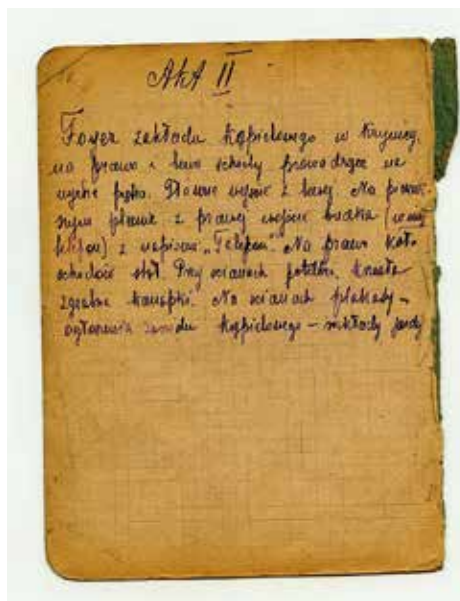 Akt II
Foyer zakładu kąpielowego w Krynicy,
na prawo i lewo schody prowadzące na
wyższe piętra. Główne wejście z lewej. Na pierw-
szym planie z prawej wejście budka
z napisem „Telefon”. Na prawo koło
schodów stół. Przy ścianach fotele, krzesła
kanapki. Na ścianach plakaty –
ogłoszenia kąpielowego – rozkłady jazdy